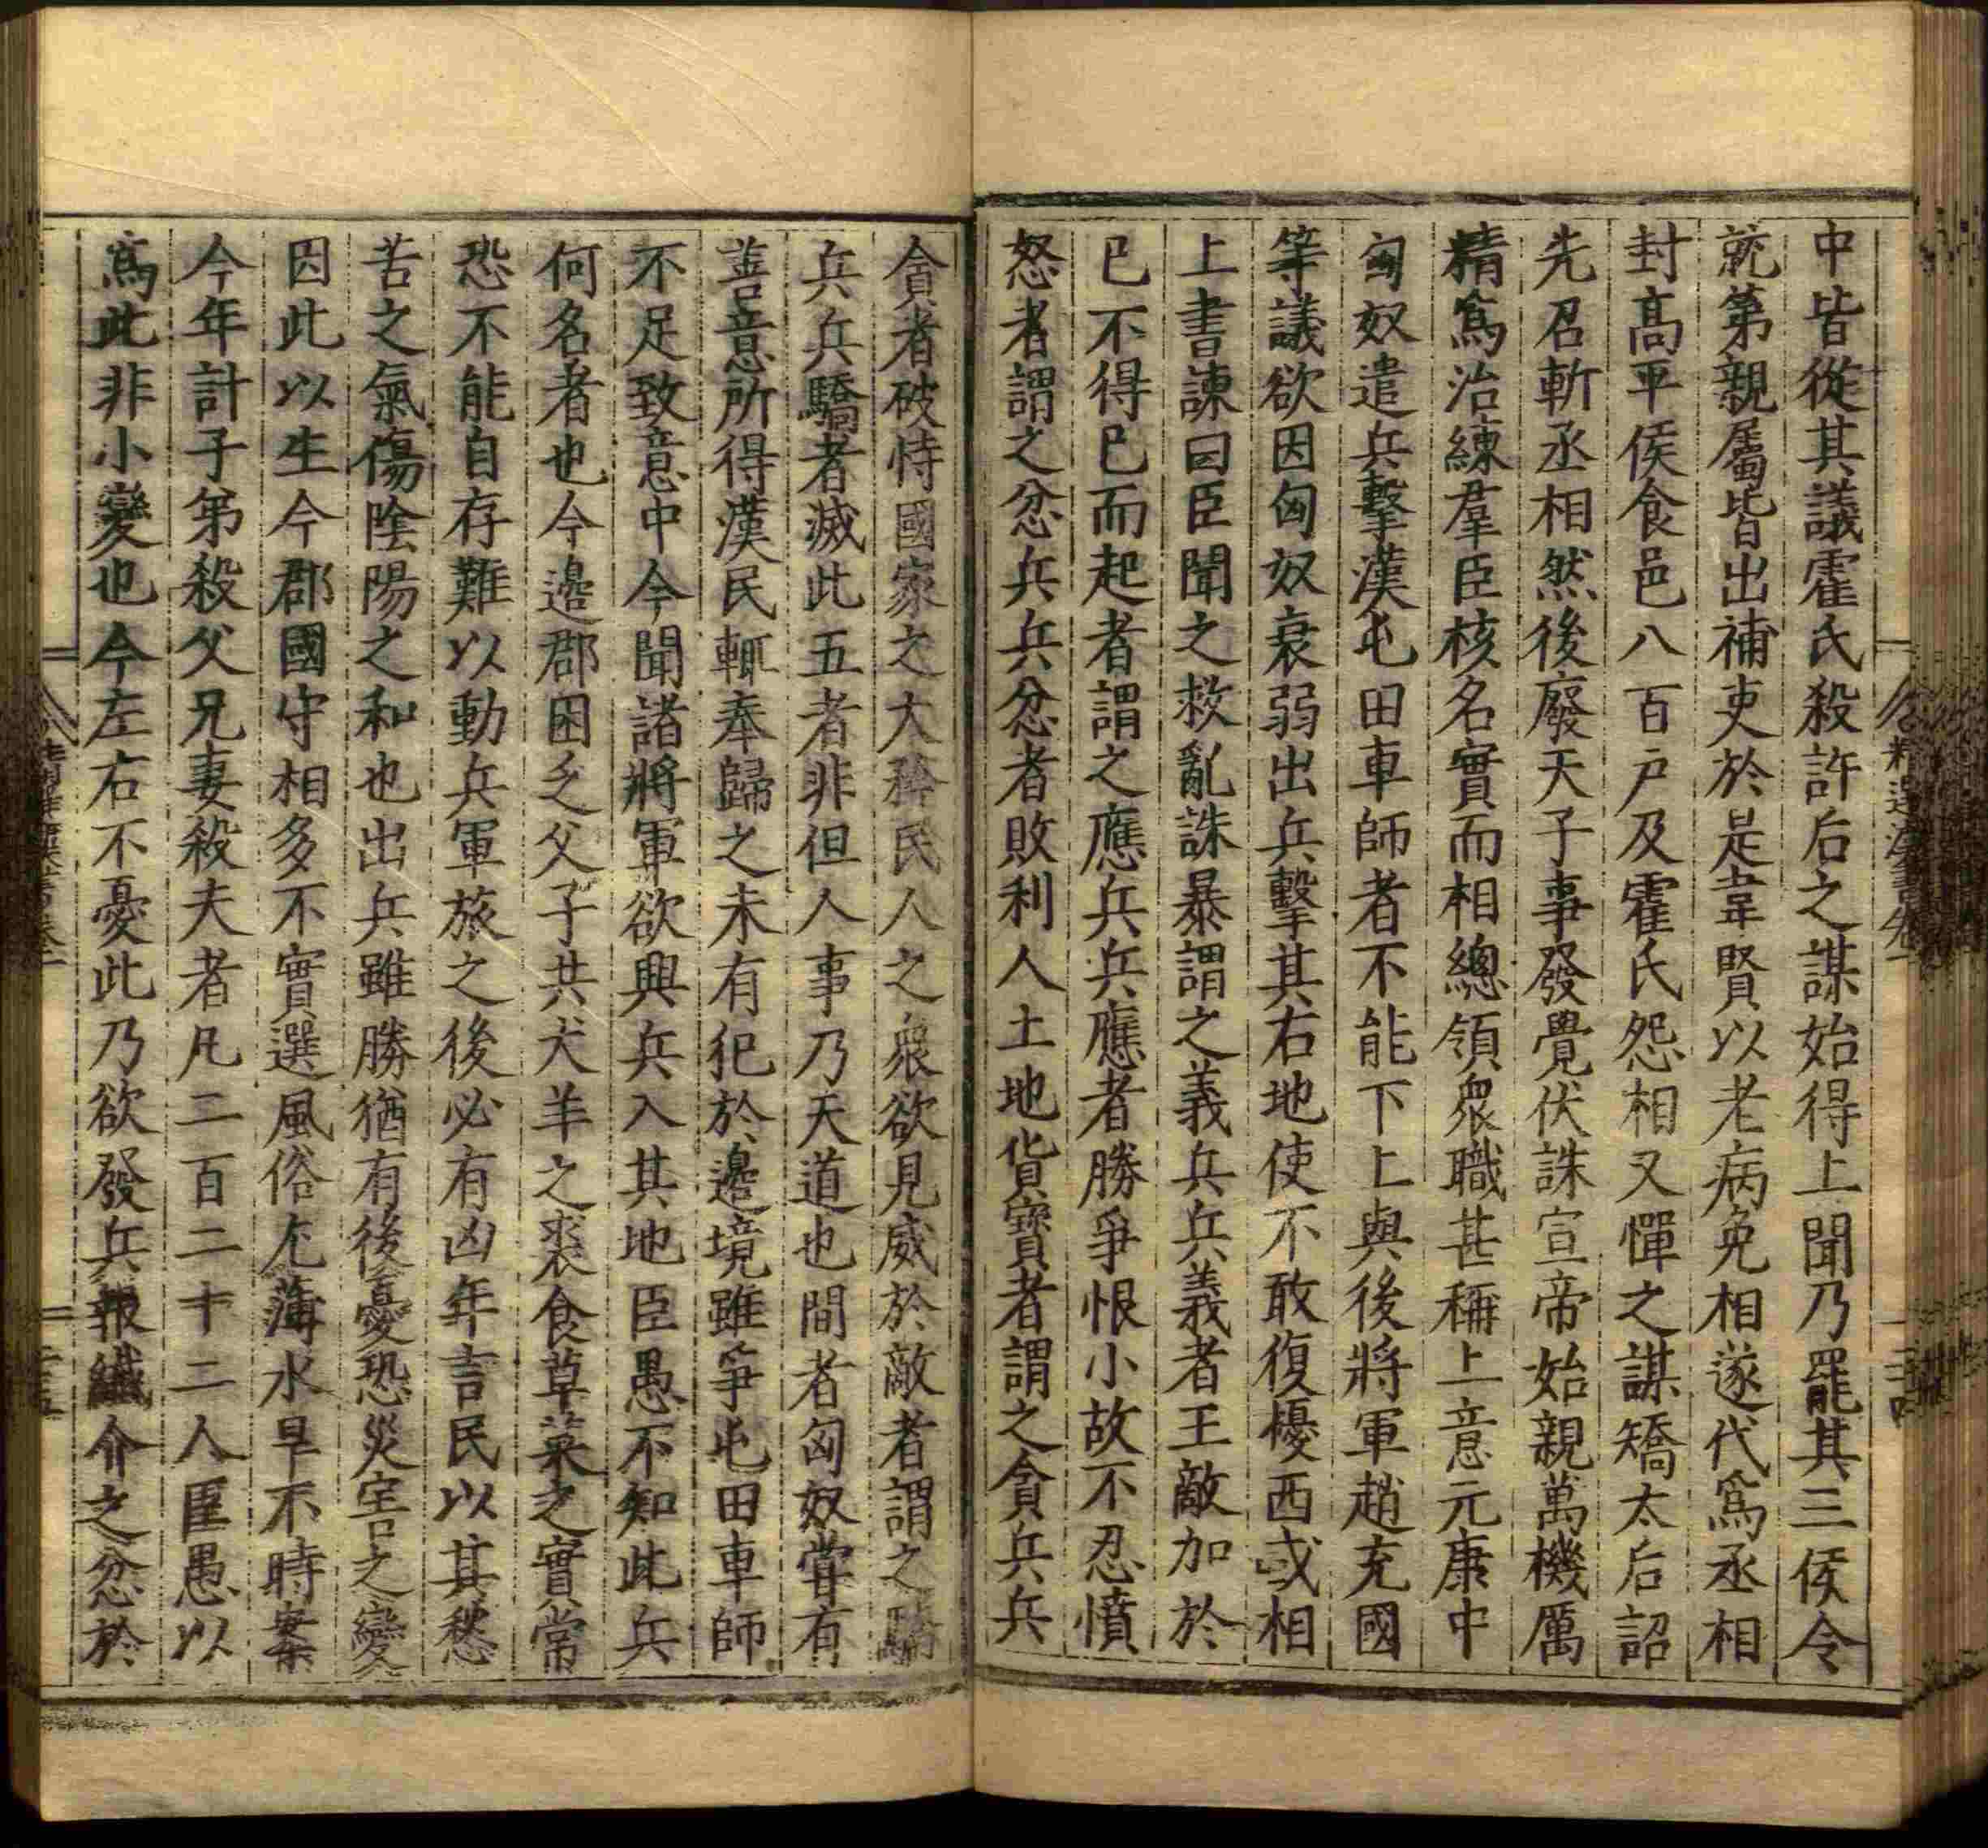 中皆從其議霍氏殺許后之謀始得上聞乃罷其三侯令
就第親屬皆出補吏於是韋賢以老病免相遂代爲丞相
封髙平侯食邑八百户及霍氏怨相又憚之謀矯太后詔
先召斬丞相然後廢天子事發覺伏誅宣帝始親萬機厲
精爲治練羣臣核名實而相總領衆職甚稱上意元康中
匈奴遣兵擊漢屯田車師者不能下上與後將軍趙充國
等議欲因匈奴衰弱出兵擊其右地使不敢復擾西域相
上書諫曰臣聞之救亂誅暴謂之義兵兵義者王敵加於
已不得已而起者謂之應兵兵應者勝爭恨小故不忍憤
怒者謂之忿兵兵忿者敗利人土地貨寳者謂之貪兵兵
貪者破恃國家之大矜民人之衆欲見威於敵者謂之驕
兵兵驕者滅此五者非但人事乃天道也間者匈奴嘗有
善意所得漢民輒奉歸之未有犯於邊境雖爭屯田車師
不足致意中今聞諸將軍欲興兵入其地臣愚不知此兵
何名者也今邉郡困乏父子共犬羊之裘食草萊之實常
恐不能自存難以動兵軍旅之後必有凶年言民以其愁
苦之氣傷陰陽之和也出兵雖勝猶有後憂恐災害之變
因此以生今郡國守相多不實選風俗尤薄水旱不時案
今年計子弟殺父兄妻殺夫者凡二百二十二人臣愚以
爲此非小變也今左右不憂此乃欲發兵報纎介之忿於